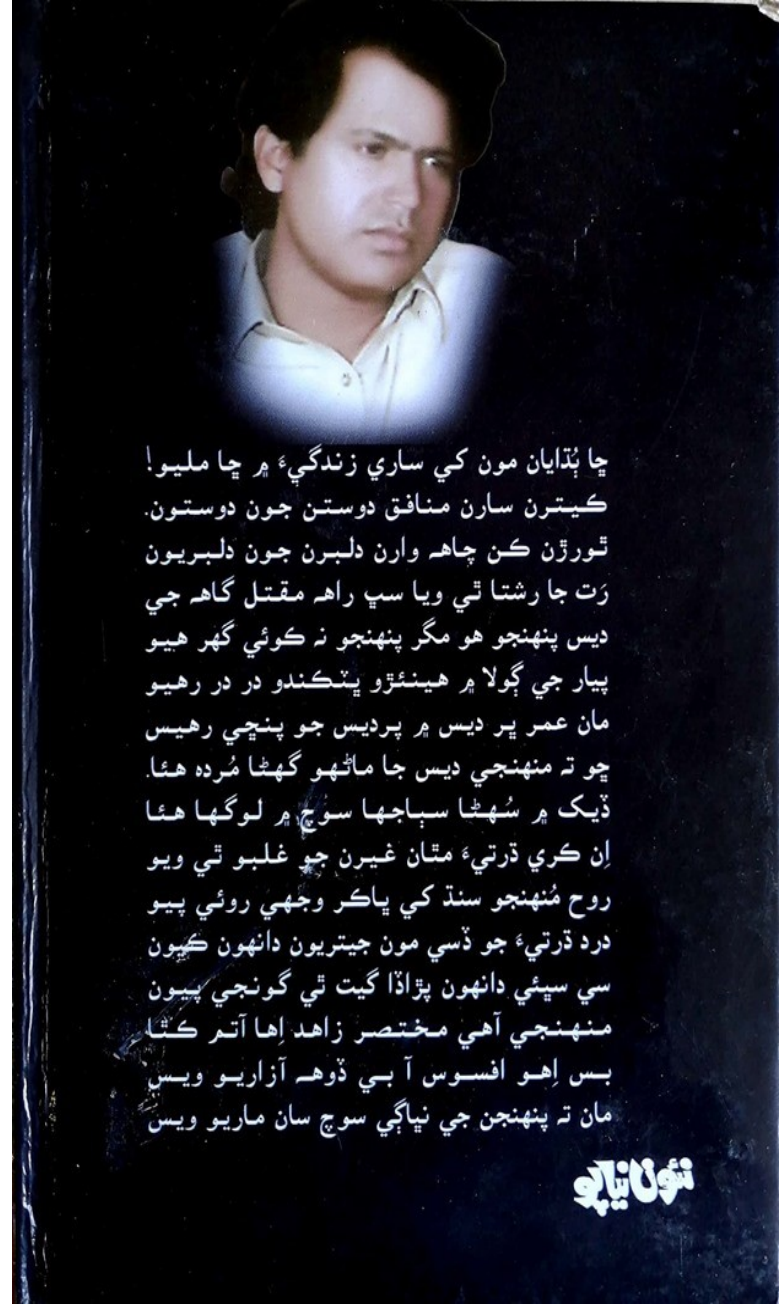 ڇا ٻُڌايان مون کي ساري زندگيءَ ۾ ڇا مليو!
ڪيترن سارن منافق دوستن جون دوستون.
ٿورڙن ڪن چاهہ وارن دلبرن جون دلبريون
رَت جا رشتا ٿي ويا سڀ راهہ مقتل گاهہ جي
ديس پنهنجو هو مگر پنهنجو نہ ڪوئي گهر هيو
پيار جي ڳولا ۾ هينئڙو ڀٽڪندو در در رهيو
مان عمر ڀر ديس ۾ پرديس جو پنڇي رهيس
ڇو تہ منهنجي ديس جا ماڻهو گهڻا مُرده هئا.
ڏيک ۾ سُهڻا سٻاجها سوچ ۾ لوگها هئا
اِن ڪري ڌرتيءَ مٿان غيرن جو غلبو ٿي ويو
روح مُنهنجو سنڌ کي ڀاڪر وجهي روئي پيو
درد ڌرتيءَ جو ڏسي مون جيتريون دانهون ڪيون
سي سڀئي دانهون پڙاڏا گيت ٿي گونجي پيون
منهنجي آهي مختصر زاهد اِها آتم ڪٿا
بس اِهو افسوس آ بي ڏوهہ آزاريو ويس
مان تہ پنهنجن جي نڀاڳي سوچ سان ماريو ويس
نئون نياپو